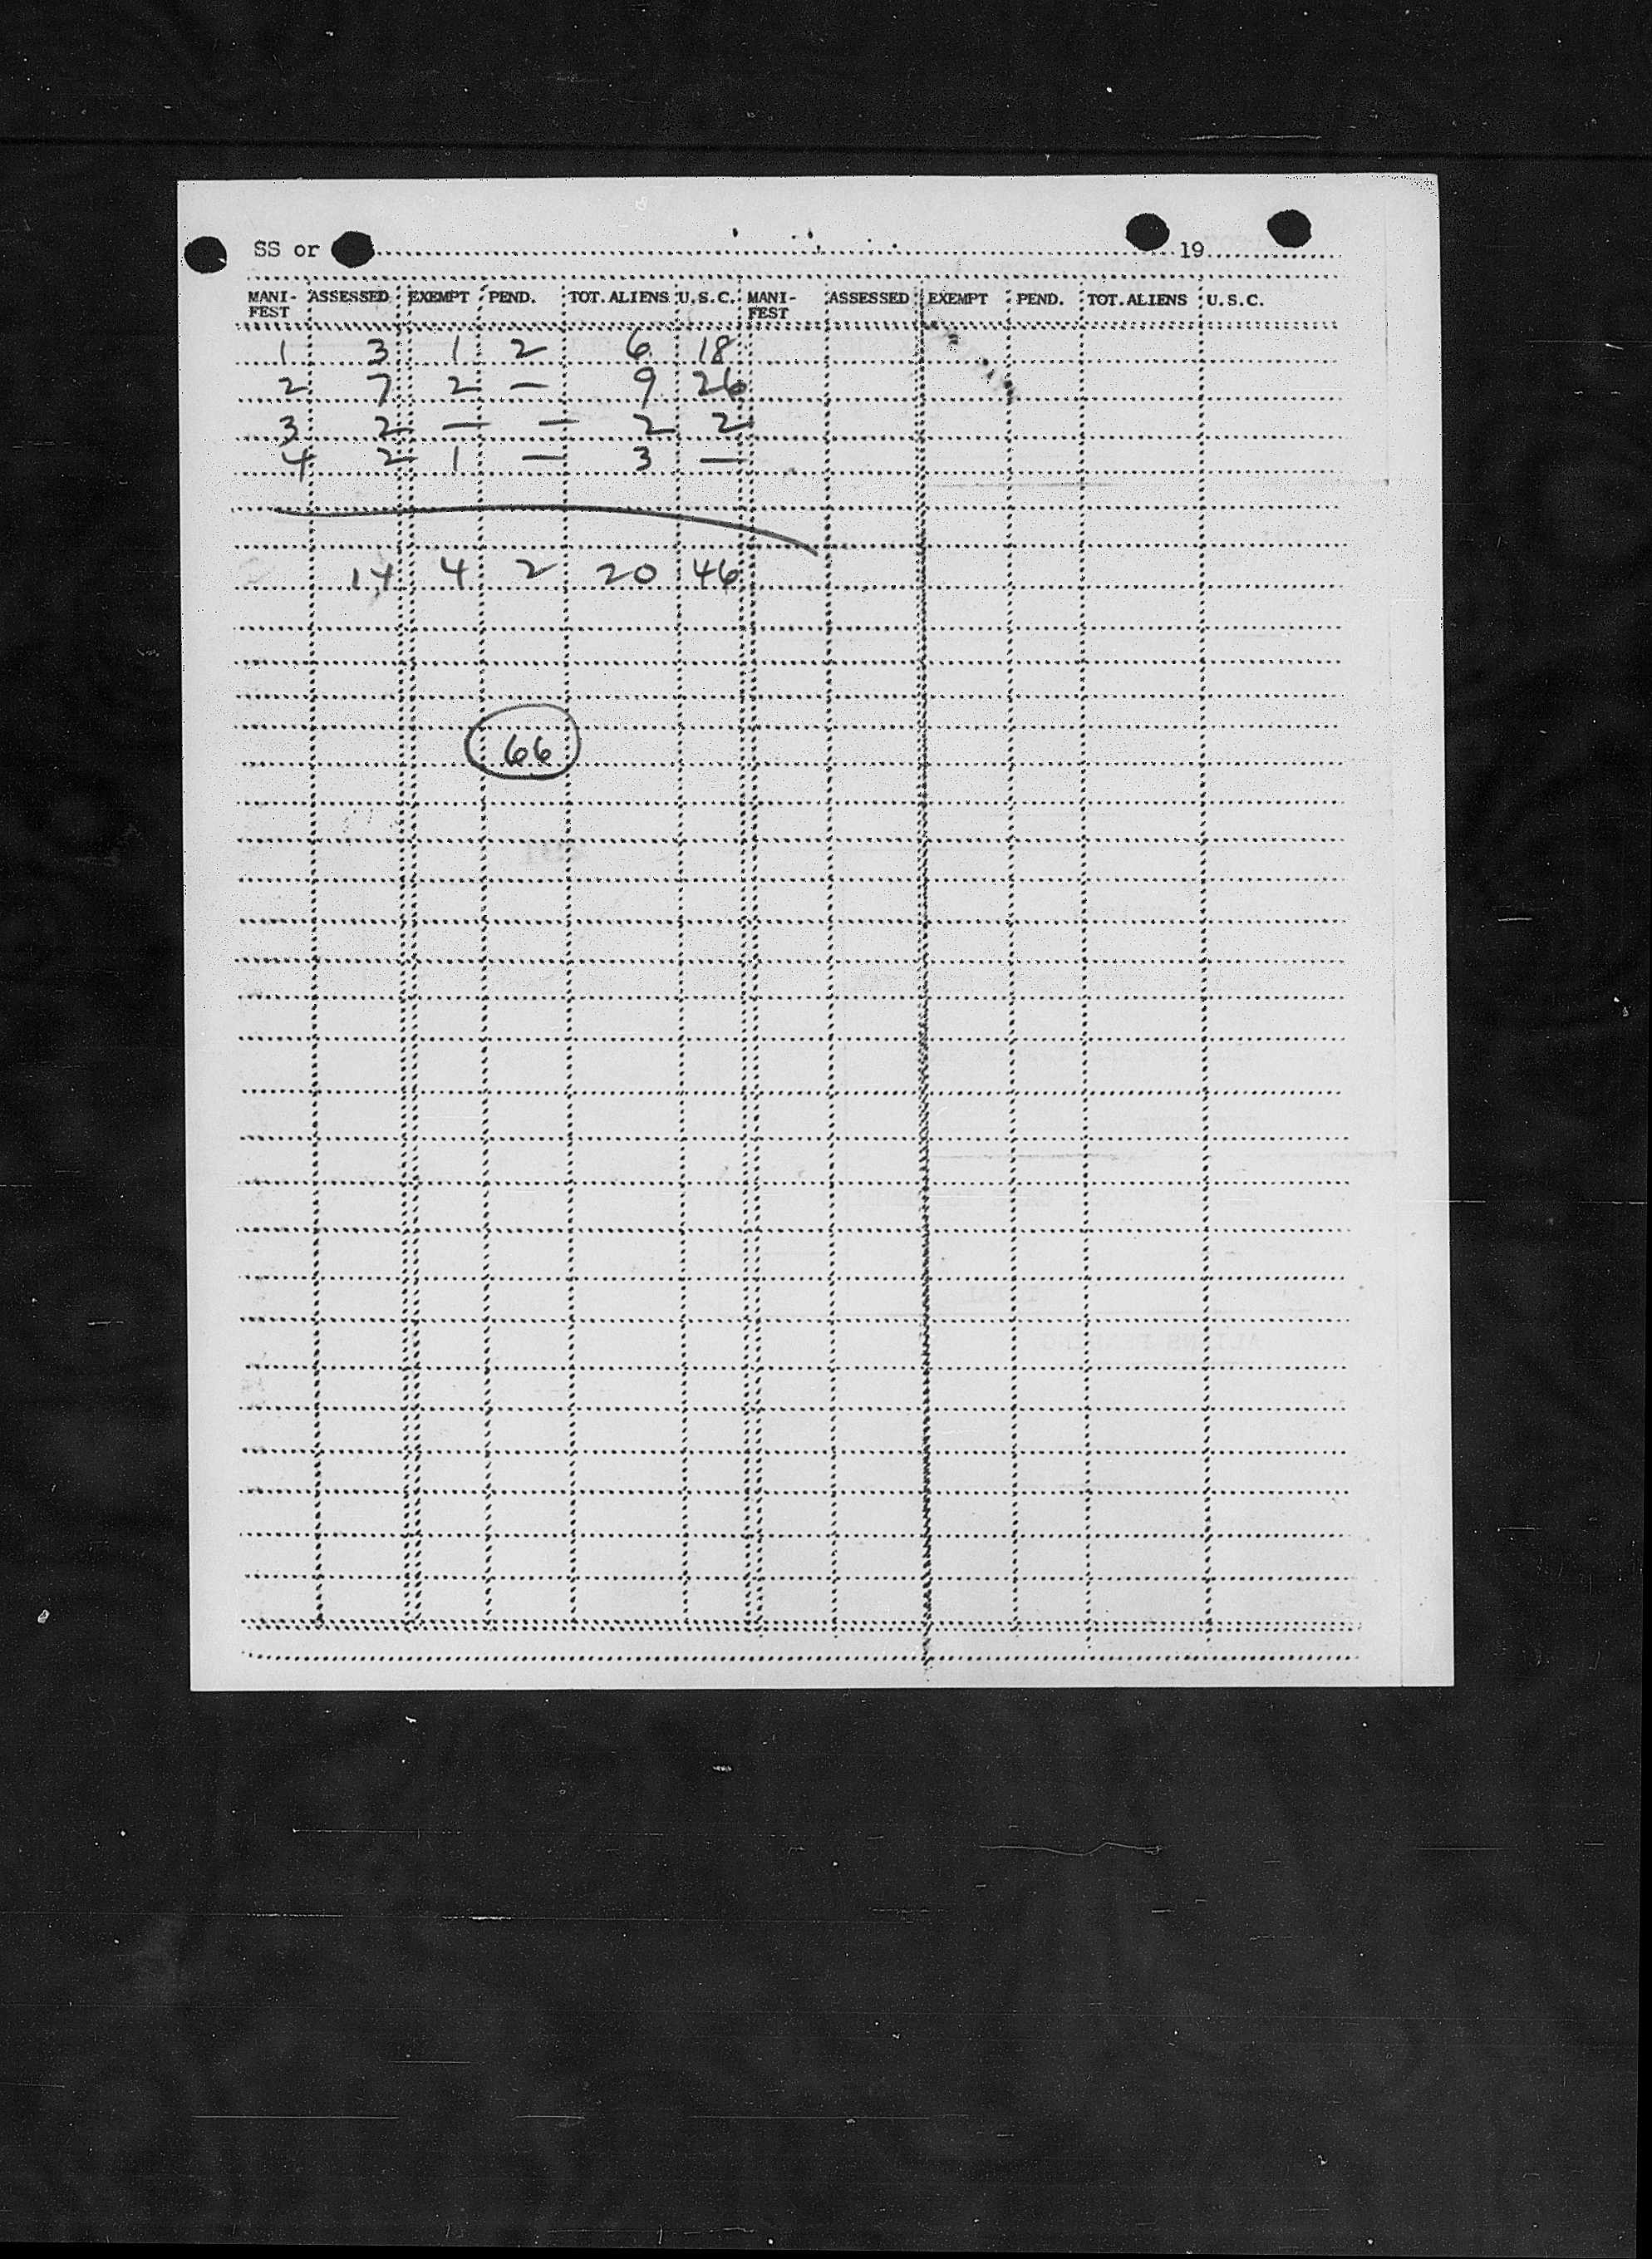 SS or 19
MANI-FEST ASSESSED EXEMPT PEND. TOT. ALIENS U.S.C. MANI-FEST ASSESSED EXEMPT PEND. TOT. ALIENS U.S.C.
1 3 1 2 6 18
2 7 2 — 9 26
3 2 — — 2 2
4 2 1 — 3 —
14 4 2 20 46
66